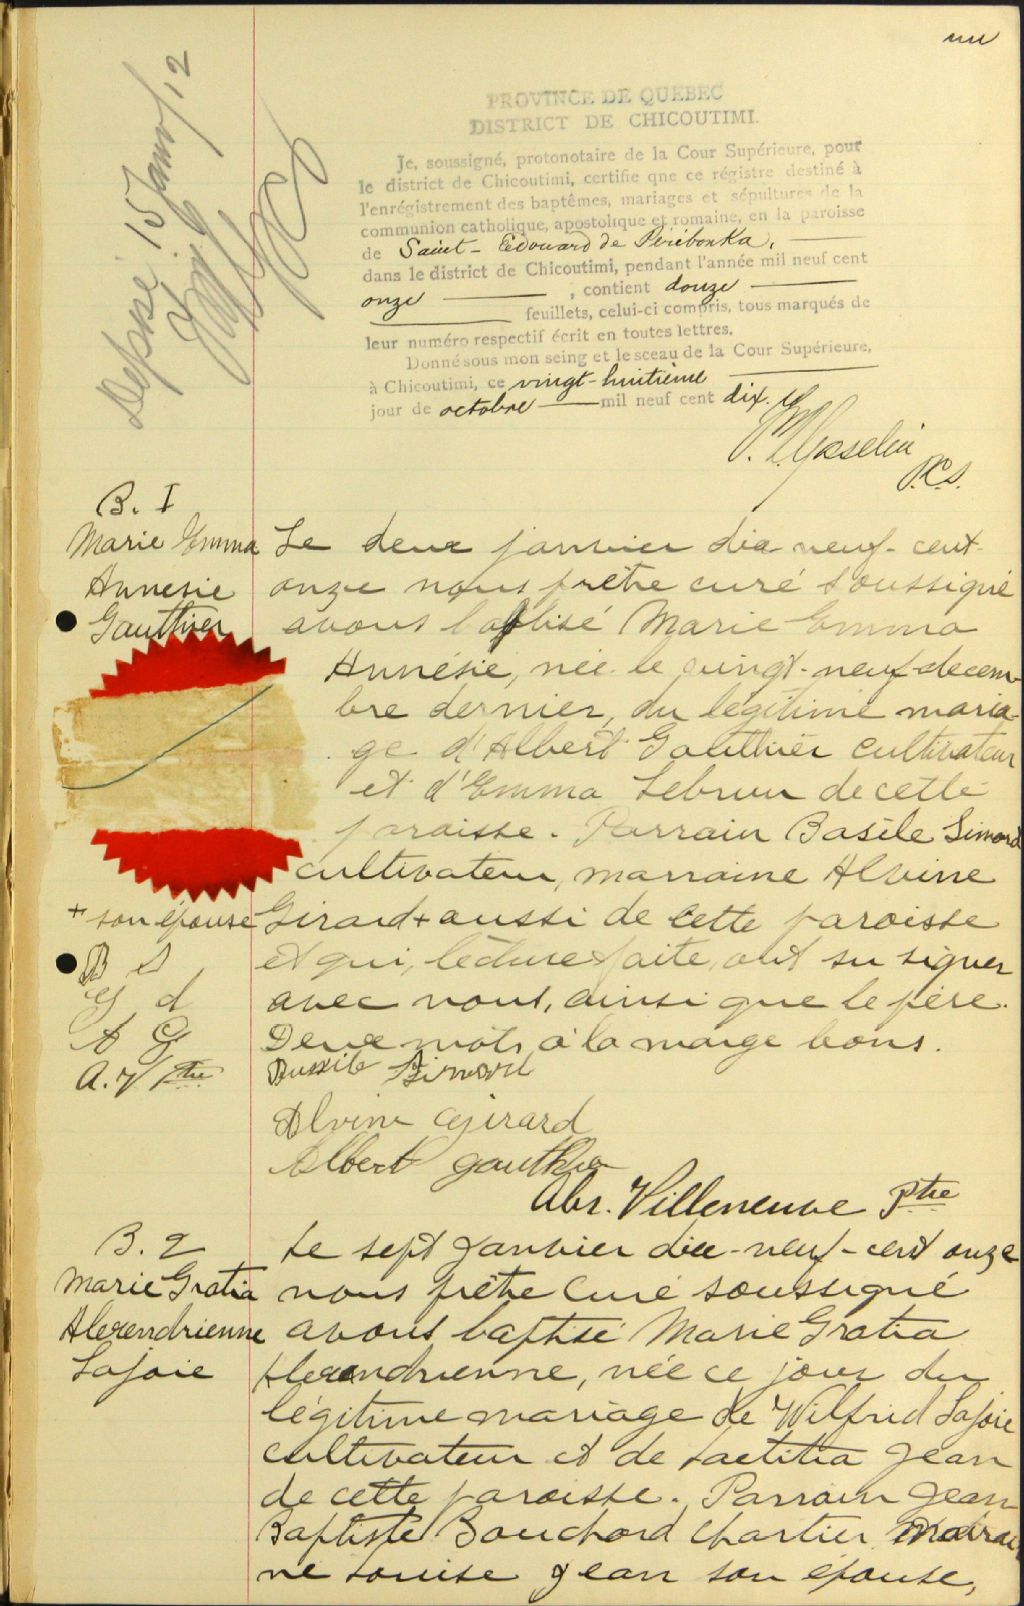 un
Déposé 15 janv/12
PROVINCE DE QUEBEC
DISTRICT DE CHICOUTIMI.
Je, soussigné, protonotaire de la Cour Supérieure, pour
le district de Chicoutimi, certifie qne ce régistre destiné à
l'enrégistrement des baptêmes, mariages et sépultures de la
communion catholique, apostolique et romaine, en la paroisse
de Saint-Edouard de Péribonka,
dans le district de Chicoutimi, pendant l'année mil neuf cent
onze , contient douze
feuillets, celui-ci compris, tous marqués de
leur numéro respectif écrit en toutes lettres.
Donné sous mon seing et le sceau de la Cour Supérieure,
à Chicoutimi, ce vingt-huitième
jour de octobre mil neuf cent dix.
P.C.S.
B. I
Marie Emma
Annésie
Gauthier
Le deux janvier dix neuf-cent
onze nous prêtre curé soussigné
avons baptisé Marie Emma
Annésie, née le vingt-neuf decem-
bre dernier, du légitime maria-
ge d'Albert Gauthier cultivateur
et d'Emma Lebrun de cette
paroisse. Parrain Basile Simard
cultivateur, marraine Alvine
+ son épouse
Girard + aussi de cette paroisse
et qui, lecture faite, ont su signer
avec nous, ainsi que le père.
Deux mots à la marge bons.
B S
G d
A G
A. V Ptre
Simard
Alvine Girard
Albert Gauthier
Abr. Villeneuve Ptre
B. 2
Marie Gratia
Alexendrienne
Lajoie
Le sept janvier dix-neuf-cent onze
nous prêtre curé soussigné
avons baptisé Marie Gratia
Alexandrienne, née ce jour du
légitime mariage de Wilfrid Lajoie
cultivateur et de Laetitia Jean
de cette paroisse. Parrain Jean
Baptiste Bouchard chartier Marrai
ne Louise Jean son épouse,